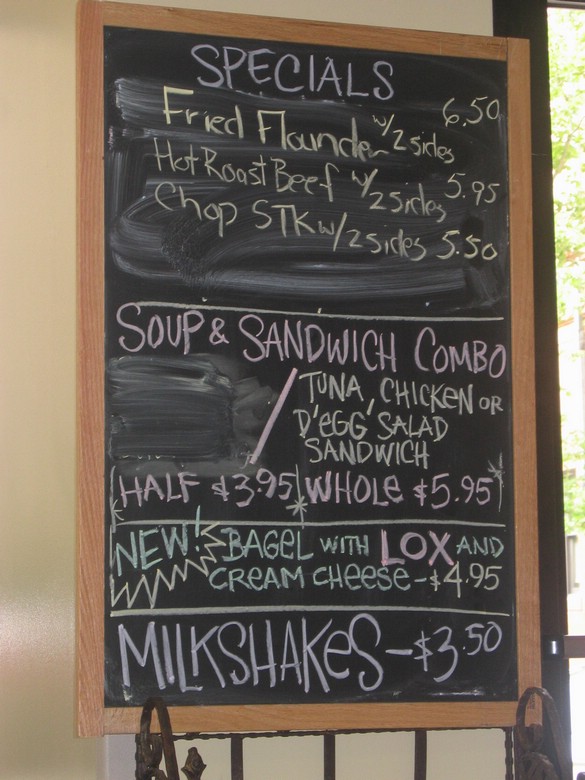 SPECIALS
Fried Flounder w/2 sides 6.50
Hot Roast Beef w/2 sides 5.95
Chop STK w/2 sides 5.50
SOUP & SANDWICH COMBO
TUNA, CHICKEN OR
D'EGG SALAD
SANDWICH
HALF $3.95 WHOLE $5.95
NEW! BAGEL WITH LOX AND
CREAM CHEESE - $4.95
MILKSHAKES - $3.50